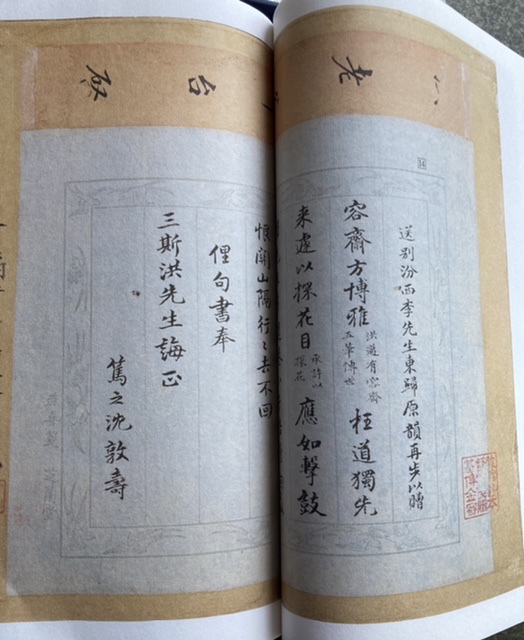 14
老
台
啟
送別汾西李先生東歸原韻再步以贈
容齋方博雅
洪邁有容齋
五筆傳世
枉道獨先
来遽以探花目
承許以
探花
應如擊鼓
恨關山隔行〻去不回
俚句書奉
三斯洪先生誨正
篤之沈敦壽